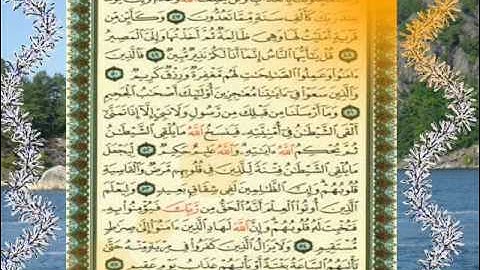 عِندَ رَبِّكَ كَأَلْفِ سَنَةٍ مِّمَّا تَعُدُّونَ ٤٧ وَكَأَيِّن مِّن
قَرْيَةٍ أَمْلَيْتُ لَهَا وَهِيَ ظَالِمَةٌ ثُمَّ أَخَذْتُهَا وَإِلَيَّ الْمَصِيرُ
٤٨ قُلْ يَا أَيُّهَا النَّاسُ إِنَّمَا أَنَا لَكُمْ نَذِيرٌ مُّبِينٌ ٤٩ فَالَّذِينَ
ءَامَنُوا وَعَمِلُوا الصَّالِحَاتِ لَهُم مَّغْفِرَةٌ وَرِزْقٌ كَرِيمٌ ٥٠
وَالَّذِينَ سَعَوْا فِي ءَايَاتِنَا مُعَاجِزِينَ أُولَٰئِكَ أَصْحَابُ الْجَحِيمِ
٥١ وَمَا أَرْسَلْنَا مِن قَبْلِكَ مِن رَّسُولٍ وَلَا نَبِيٍّ إِلَّا إِذَا تَمَنَّىٰ
أَلْقَى الشَّيْطَانُ فِي أُمْنِيَّتِهِ فَيَنسَخُ اللَّهُ مَا يُلْقِي الشَّيْطَانُ
ثُمَّ يُحْكِمُ اللَّهُ ءَايَاتِهِ وَاللَّهُ عَلِيمٌ حَكِيمٌ ٥٢ لِّيَجْعَلَ
مَا يُلْقِي الشَّيْطَانُ فِتْنَةً لِّلَّذِينَ فِي قُلُوبِهِم مَّرَضٌ وَالْقَاسِيَةِ
قُلُوبُهُمْ وَإِنَّ الظَّالِمِينَ لَفِي شِقَاقٍ بَعِيدٍ ٥٣ وَلِيَعْلَمَ
الَّذِينَ أُوتُوا الْعِلْمَ أَنَّهُ الْحَقُّ مِن رَّبِّكَ فَيُؤْمِنُوا بِهِ
فَتُخْبِتَ لَهُ قُلُوبُهُمْ وَإِنَّ اللَّهَ لَهَادِ الَّذِينَ ءَامَنُوا إِلَىٰ صِرَاطٍ
مُّسْتَقِيمٍ ٥٤ وَلَا يَزَالُ الَّذِينَ كَفَرُوا فِي مِرْيَةٍ مِّنْهُ حَتَّىٰ
تَأْتِيَهُمُ السَّاعَةُ بَغْتَةً أَوْ يَأْتِيَهُمْ عَذَابُ يَوْمٍ عَقِيمٍ